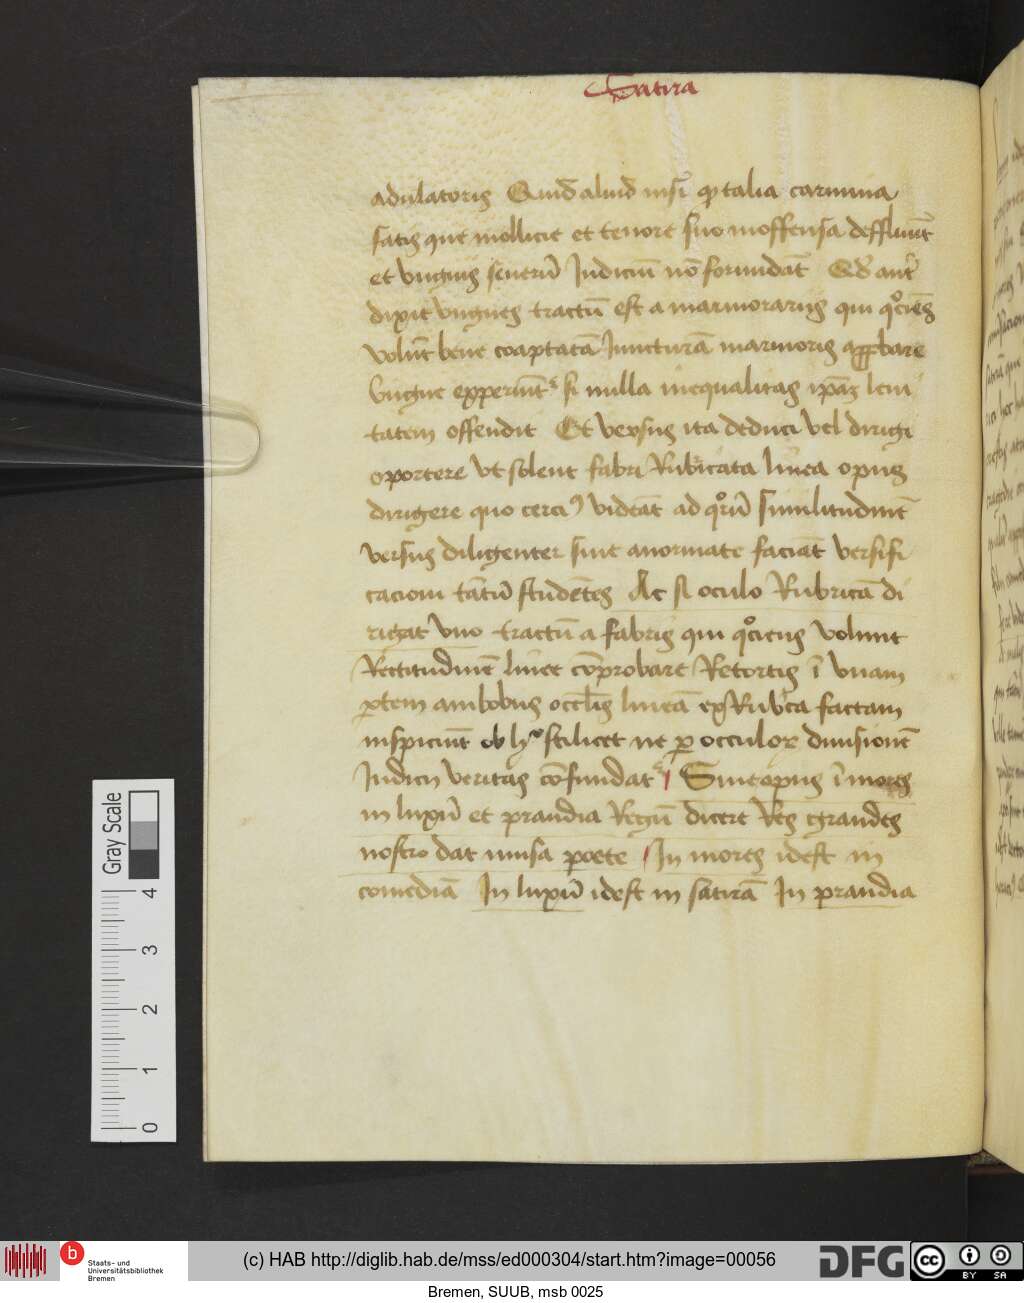 Satira
adulatoris Quid aliud nisi qꝫ talia carmina
satis que mollicie et tenore suo inoffensa deffluūt
et unguis seuerū Iudiciū nō formidāt Qd' aut'
dixit ungues tractū est a marmorariis qui qͦciēs
volūt bene coaptatā Iuncturā marmoris approbare
Vngue experiūt' si nulla inequalitas ipāꝫ leui
tatem offendit Et versus ita deduci vel dirigi
oportere vt solent fabri Rubricata linea opus
dirigere quo certiꝰ videāt ad qͦrū similitudinē
versus diligenter sine anormate faciāt versifi
cacioni tātū studētes Ac si oculo Rubricā di
rigat vno tractū a fabris qui qͦciens volunt
Rectitudinē linee cōprobare Retortis ī vnam
ꝑtem ambobus occlis lineā ex Rubͬca factam
inspiciūt ob hͦ scilicet ne ꝑ occulorꝫ diuisionē
Iudicii veritas cōfundat' Siue opus ī mores
in luxū et prandia Regū dicere Res grandes
nostro dat musa poete In mores idest in
comediā In luxū idest in satirā In prandia
Gray Scale
4
3
2
1
0
b
Staats- und
Universitätsbibliothek
Bremen
(c) HAB http://diglib.hab.de/mss/ed000304/start.htm?image=00056
DFG
cc
BY SA
Bremen, SUUB, msb 0025